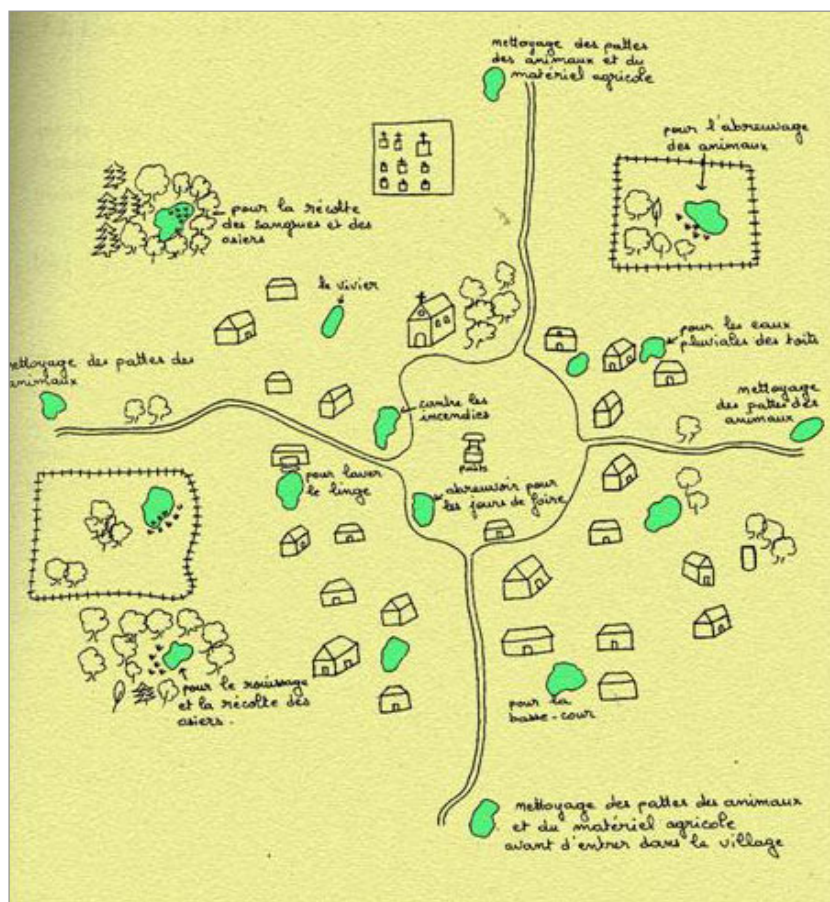 nettoyage des pattes
des animaux et du
matériel agricole
pour l'abreuvage
des animaux
pour la récolte
des sangues et des
osiers
le vivier
pour les eaux
pluviales des toits
nettoyage des pattes des
animaux
contre les
incendies
nettoyage
des pattes des
animaux
puits
pour laver
le linge
abreuvoir pour
les jours de foire
pour le rouissage
et la récolte des
osiers.
pour la
basse-cour
nettoyage des pattes des animaux
et du matériel agricole
avant d'entrer dans le village